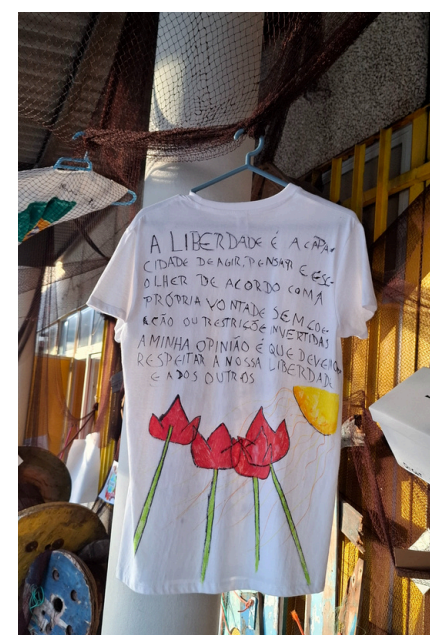 A LIBERDADE É A CAPA-
CIDADE DE AGIR, PENSAR E ESC-
OLHER DE ACORDO COM A
PRÓPRIA VONTADE SEM COE-
RÇÃO OU RESTRIÇÕE INVERTIDAS
A MINHA OPINIÃO É QUE DEVEMOS
RESPEITAR A NOSSA LIBERDADE
E A DOS OUTROS